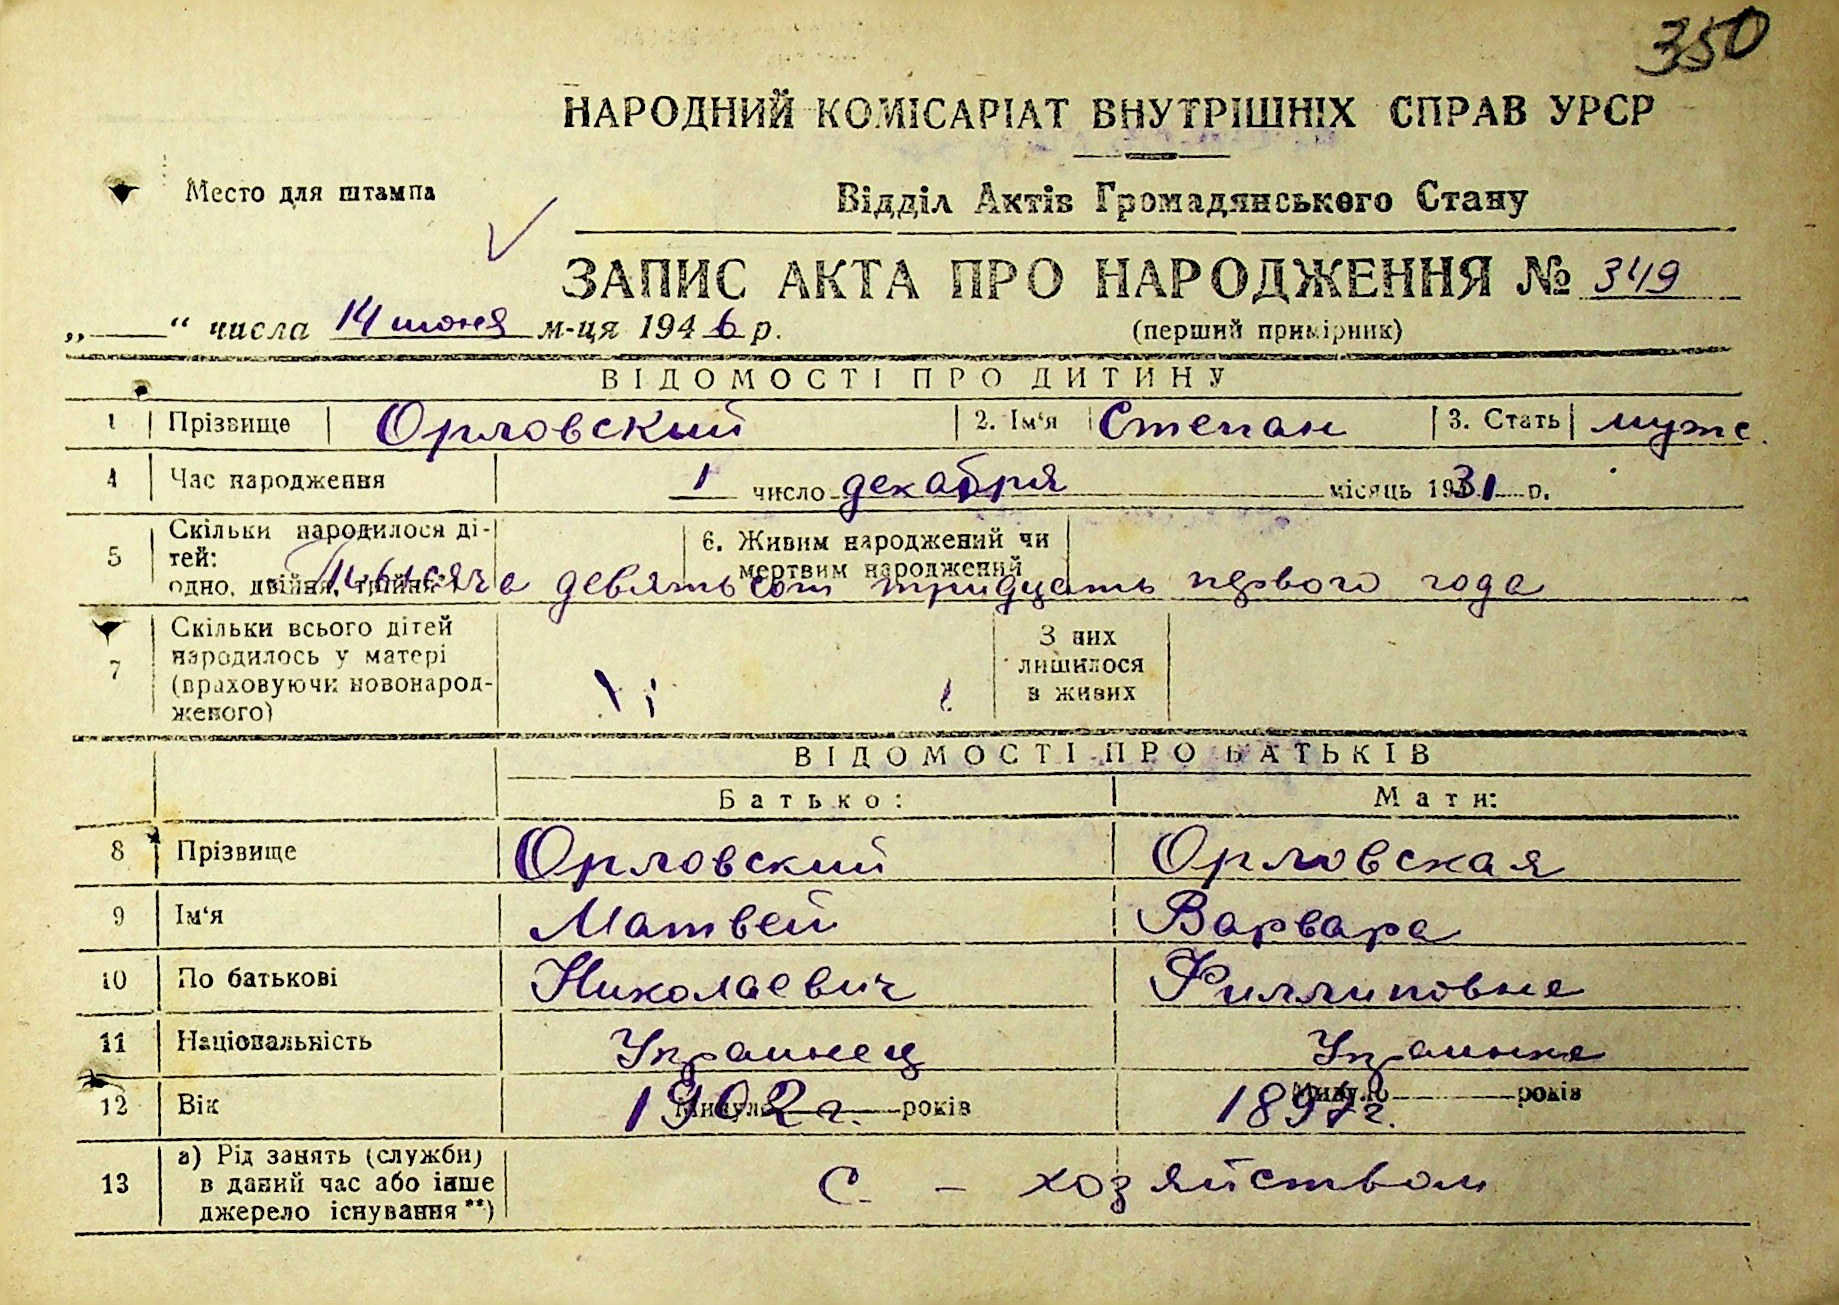 350
НАРОДНИЙ КОМІСАРІАТ ВНУТРІШНІХ СПРАВ УРСР
Место для штампа
Відділ Актів Громадянського Стану
ЗАПИС АКТА ПРО НАРОДЖЕННЯ № 349
„ “ числа 14 июня м-ця 1946 р.
(перший примірник)
ВІДОМОСТІ ПРО ДИТИНУ
1 Прізвище Орловский 2. Ім‘я Степан 3. Стать муж.
4 Час народження 1 число декабря місяць 1931 р.
5 Скільки народилося ді-
тей:
одно, двійня, трійня
6. Живим народжений чи
мертвим народжений
Тысяча девятьсот тридцать первого года
7 Скільки всього дітей
народилось у матері
(враховуючи новонарод-
женого)
З них
лишилося
в живих
ВІДОМОСТІ ПРО БАТЬКІВ
Батько: Мати:
8 Прізвище Орловский Орловская
9 Ім‘я Матвей Варвара
10 По батькові Николаевич Филлиповна
11 Національність Украинец Украинка
12 Вік Минуло 1902 г. років Минуло 1897 г. років
13 а) Рід занять (служби)
в даний час або інше
джерело існування**)
С. - хозяйством